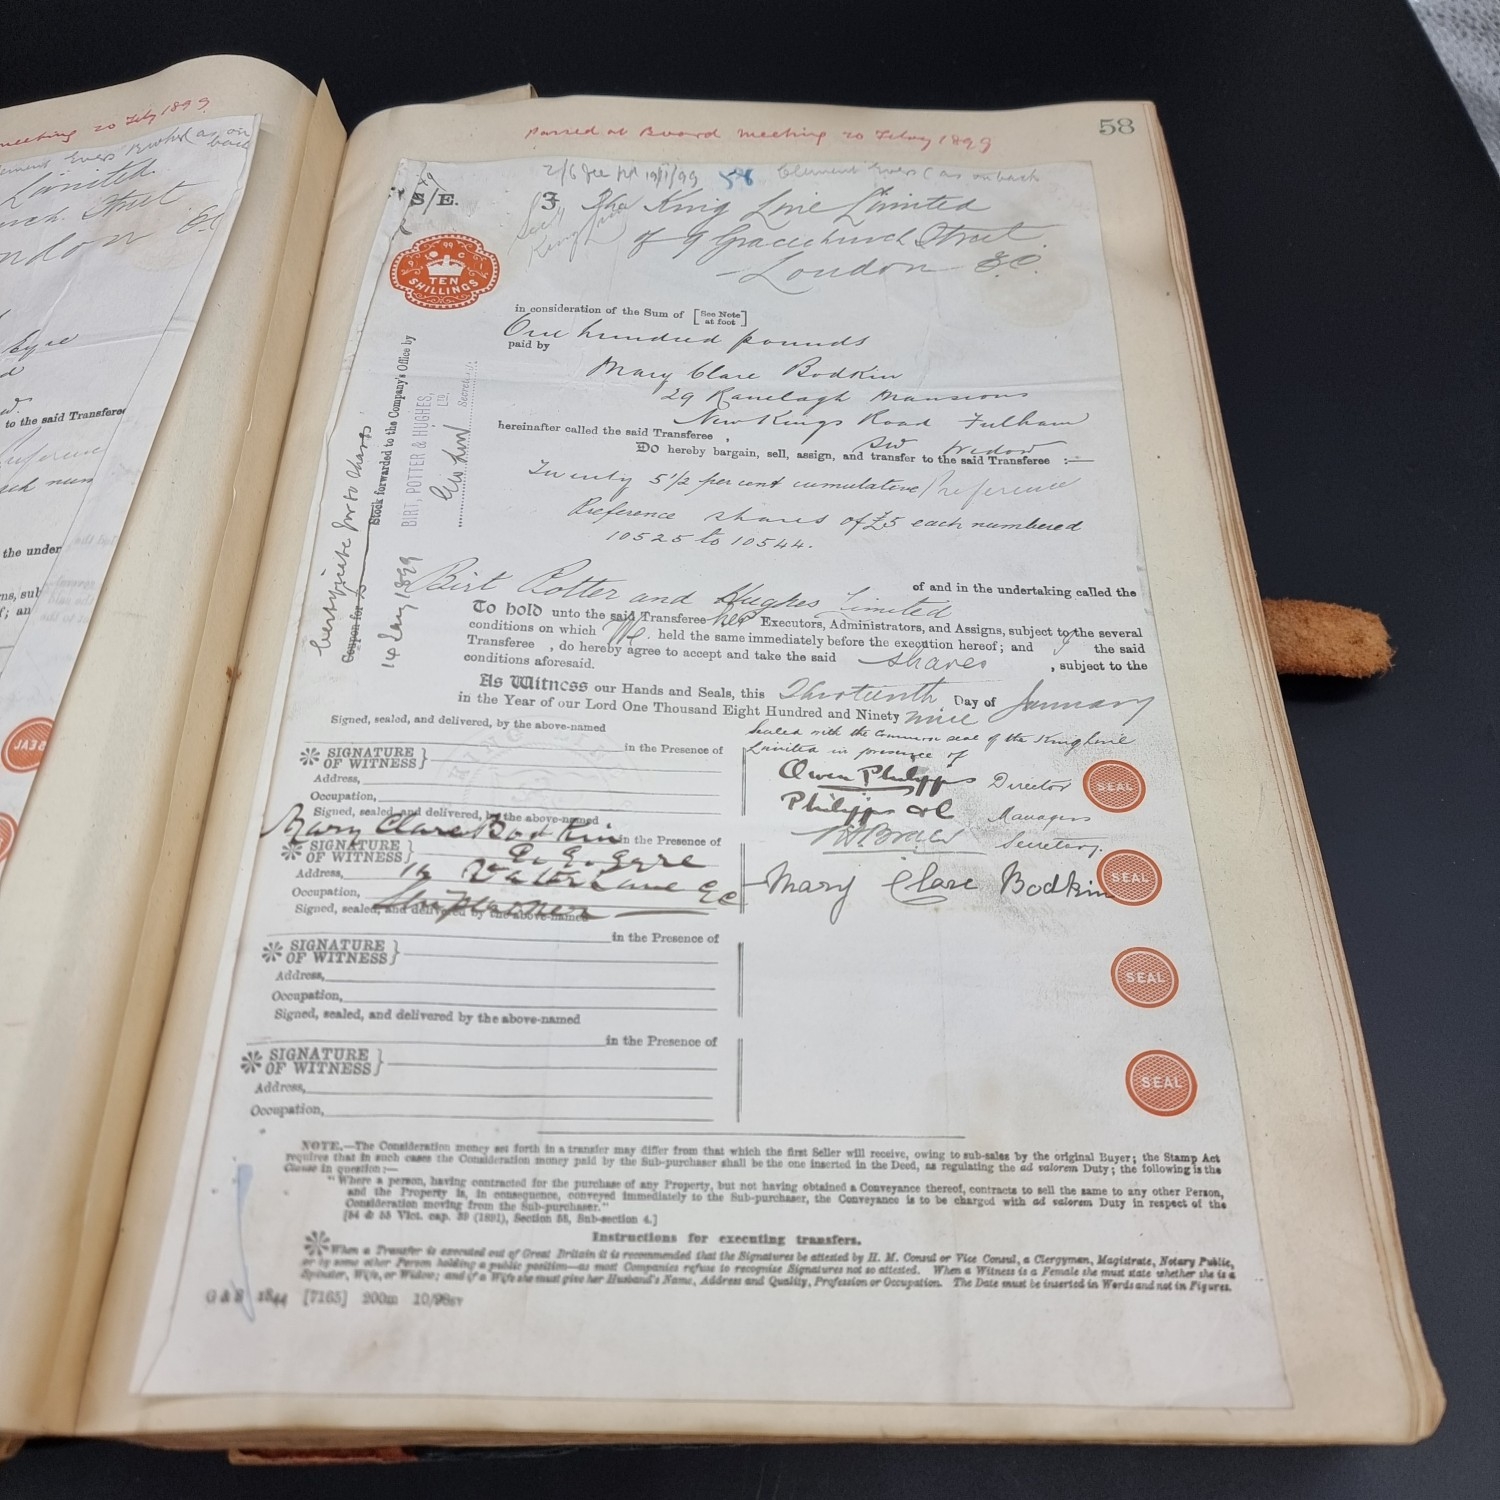 meeting 20 Feby 1899
as on
back
Limited
Street
E.C.
Eyre
to the said Transferee
the under
SEAL
58
Passed at Board Meeting 20 Febry 1899
2/6 fee pd 19/1/99 58 Clement Evers (as on back
S/E.
I The King Line Limited
of 9 Gracechurch Street
London E.C.
TEN
SHILLINGS
in consideration of the Sum of [See Note at foot]
One hundred pounds
paid by
Mary Clare Bodkin
29 Ranelagh Mansions
New Kings Road Fulham
hereinafter called the said Transferee,
SW Widow
Do hereby bargain, sell, assign, and transfer to the said Transferee :—
Twenty 5 1/2 per cent cumulative Preference
Preference shares of £5 each numbered
10525 to 10544.
Certificate for 50 shares
Coupon for
Stock forwarded to the Company's Office by
14 Jany 1899
BIRT, POTTER & HUGHES,
LTD.
Secretary
Birt Potter and Hughes Limited
of and in the undertaking called the
To hold unto the said Transferee her Executors, Administrators, and Assigns, subject to the several
conditions on which We held the same immediately before the execution hereof; and I the said
Transferee, do hereby agree to accept and take the said shares, subject to the
conditions aforesaid.
As Witness our Hands and Seals, this Thirteenth Day of January
in the Year of our Lord One Thousand Eight Hundred and Ninety nine
Signed, sealed, and delivered, by the above-named
in the Presence of
Sealed with the Common seal of the King Line
Limited in presence of
SIGNATURE
OF WITNESS
Address,
Occupation,
Owen Philipps Director
Philipps & Co Managers
Secretary.
SEAL
Signed, sealed, and delivered, by the above-named
Mary Clare Bodkin in the Presence of
SIGNATURE
OF WITNESS
E. E. Eyre
Address, 14 Water Lane EC
Occupation, Shipbroker
Mary Clare Bodkin
SEAL
Signed, sealed, and delivered by the above-named
in the Presence of
SIGNATURE
OF WITNESS
Address,
Occupation,
SEAL
Signed, sealed, and delivered by the above-named
in the Presence of
SIGNATURE
OF WITNESS
Address,
Occupation,
SEAL
NOTE.—The Consideration money set forth in a transfer may differ from that which the first Seller will receive, owing to sub-sales by the original Buyer; the Stamp Act
requires that in such cases the Consideration money paid by the Sub-purchaser shall be the one inserted in the Deed, as regulating the ad valorem Duty; the following is the
Clause in question:—
"Where a person, having contracted for the purchase of any Property, but not having obtained a Conveyance thereof, contracts to sell the same to any other Person,
and the Property is, in consequence, conveyed immediately to the Sub-purchaser, the Conveyance is to be charged with ad valorem Duty in respect of the
Consideration moving from the Sub-purchaser."
[54 & 55 Vict. cap. 39 (1891), Section 58, Sub-section 4.]
Instructions for executing transfers.
When a Transfer is executed out of Great Britain it is recommended that the Signatures be attested by H. M. Consul or Vice Consul, a Clergyman, Magistrate, Notary Public,
or by some other Person holding a public position—as most Companies refuse to recognise Signatures not so attested. When a Witness is a Female she must state whether she is a
Spinster, Wife, or Widow; and if a Wife she must give her Husband's Name, Address and Quality, Profession or Occupation. The Date must be inserted in Words and not in Figures.
1844 [7165] 200m 10/98